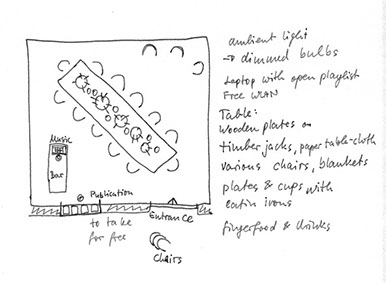 Music
Bar
Publication
to take
for free
Entrance
Chairs
ambient light
→ dimmed bulbs
Laptop with open playlist
Free WLAN
Table:
Wooden plates on
timber jacks, paper table-cloth
various chairs, blankets
plates & cups with
eatin irons
fingerfood & drinks